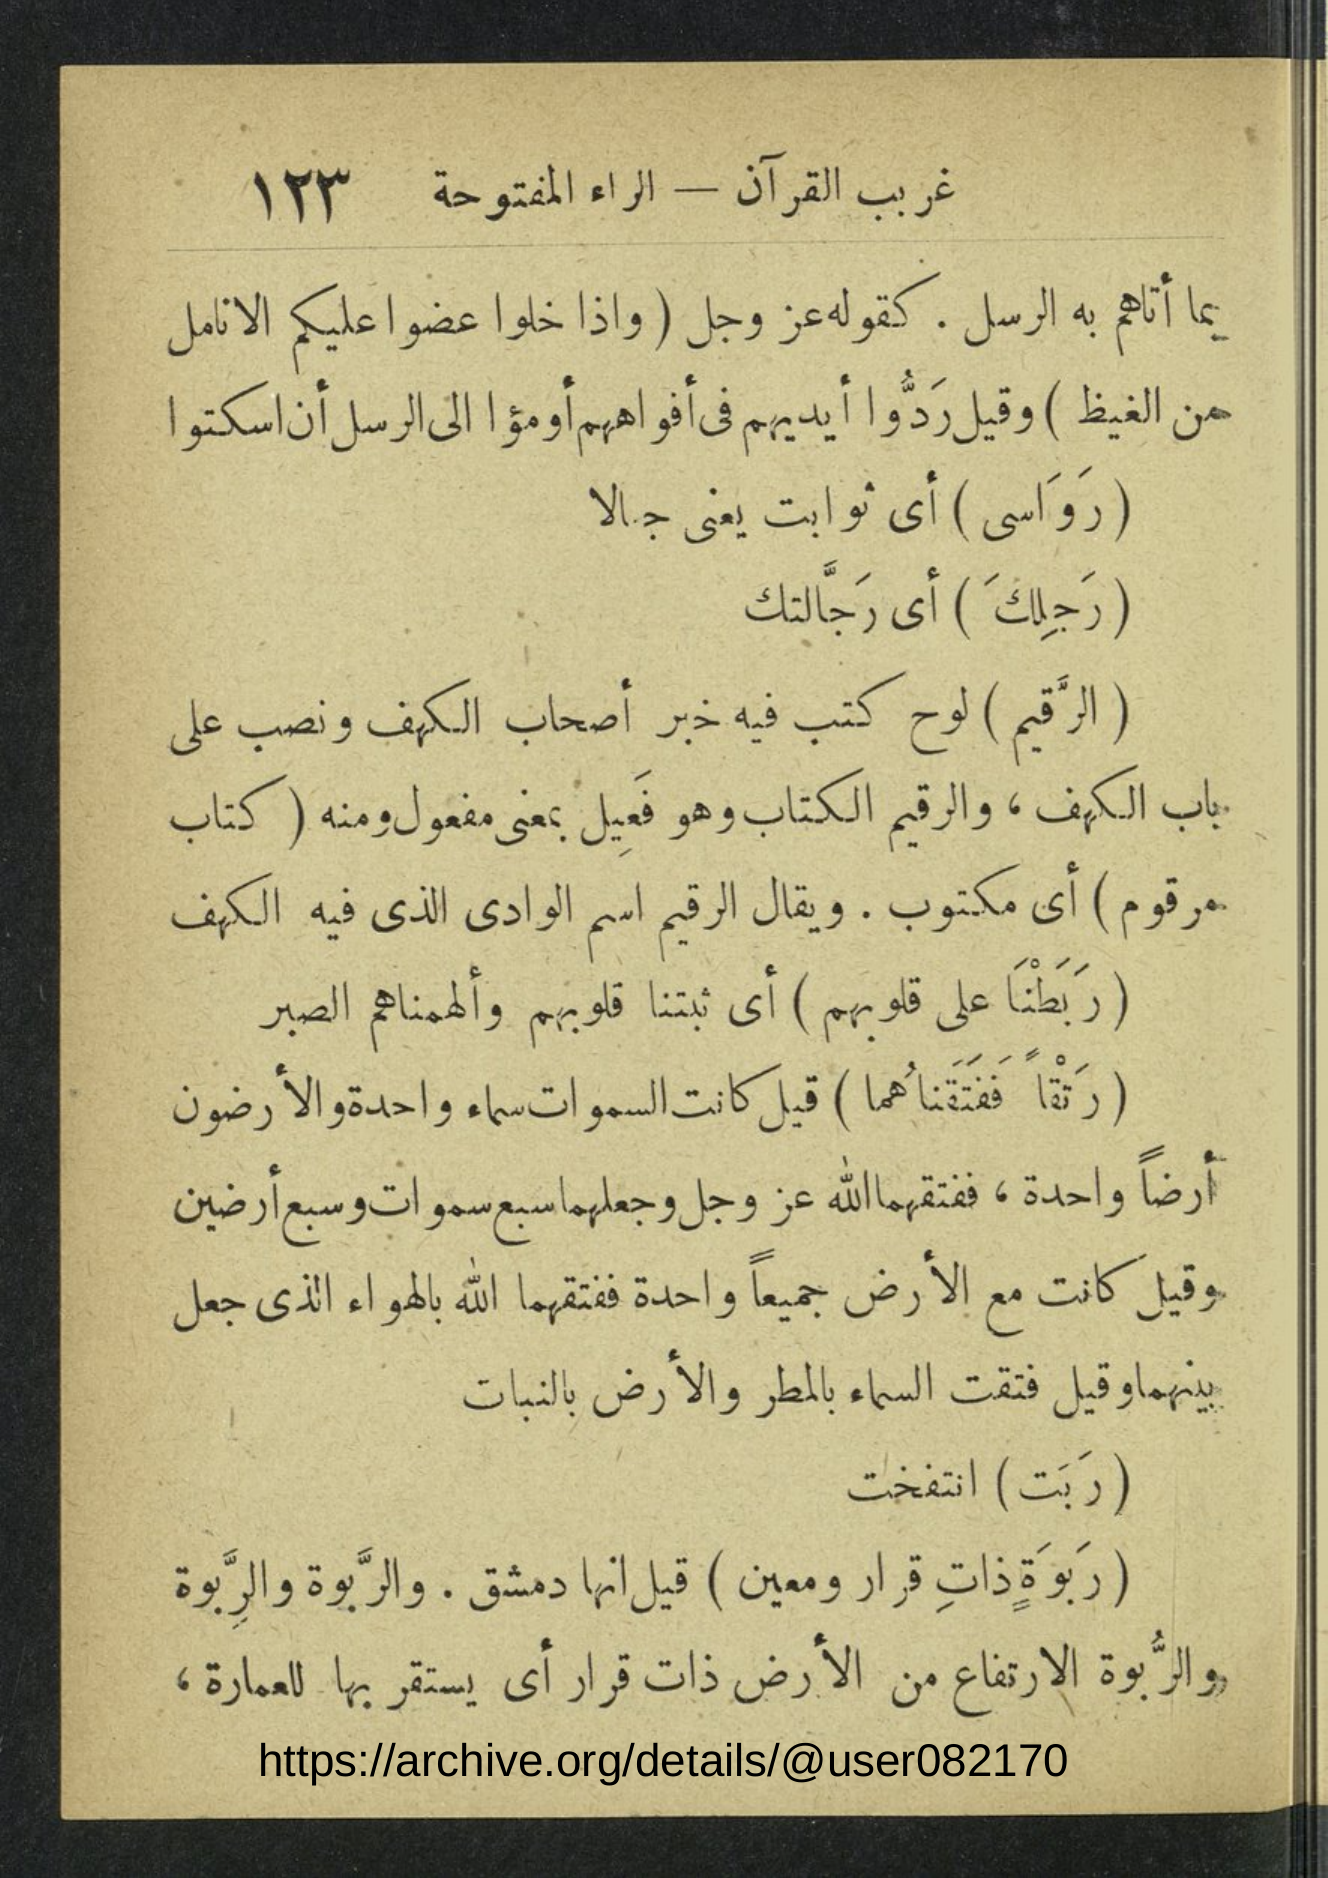 غريب القرآن — الراء المفتوحة ١٢٣
بما أتاهم به الرسل . كقوله عز وجل ( واذا خلوا عضوا عليكم الانامل
من الغيظ ) وقيل رَدُّوا أيديهم فى أفواههم أومؤا الى الرسل أن اسكتوا
( رَوَاسى ) أى ثوابت يعنى جبالا
( رَجِلِكَ ) أى رَجَّالتك
( الرَّقيم ) لوح كتب فيه خبر أصحاب الكهف ونصب على
باب الكهف ، والرقيم الكتاب وهو فَعِيل بمعنى مفعول ومنه ( كتاب
مرقوم ) أى مكتوب . ويقال الرقيم اسم الوادى الذى فيه الكهف
( رَبَطْنَا على قلوبهم ) أى ثبتنا قلوبهم وألهمناهم الصبر
( رَتْقاً فَفَتَقَنَاهُما ) قيل كانت السموات سماء واحدة والأرضون
أرضاً واحدة ، ففتقهما الله عز وجل وجعلهما سبع سموات وسبع أرضين
وقيل كانت مع الأرض جميعاً واحدة ففتقهما الله بالهواء الذى جعل
بينهما وقيل فتقت السماء بالمطر والأرض بالنبات
( رَبَت ) انتفخت
( رَبوَةٍ ذاتِ قرار ومعين ) قيل انها دمشق . والرَّبوة والرِّبوة
والرُّبوة الارتفاع من الأرض ذات قرار أى يستقر بها للعمارة ،
https://archive.org/details/@user082170